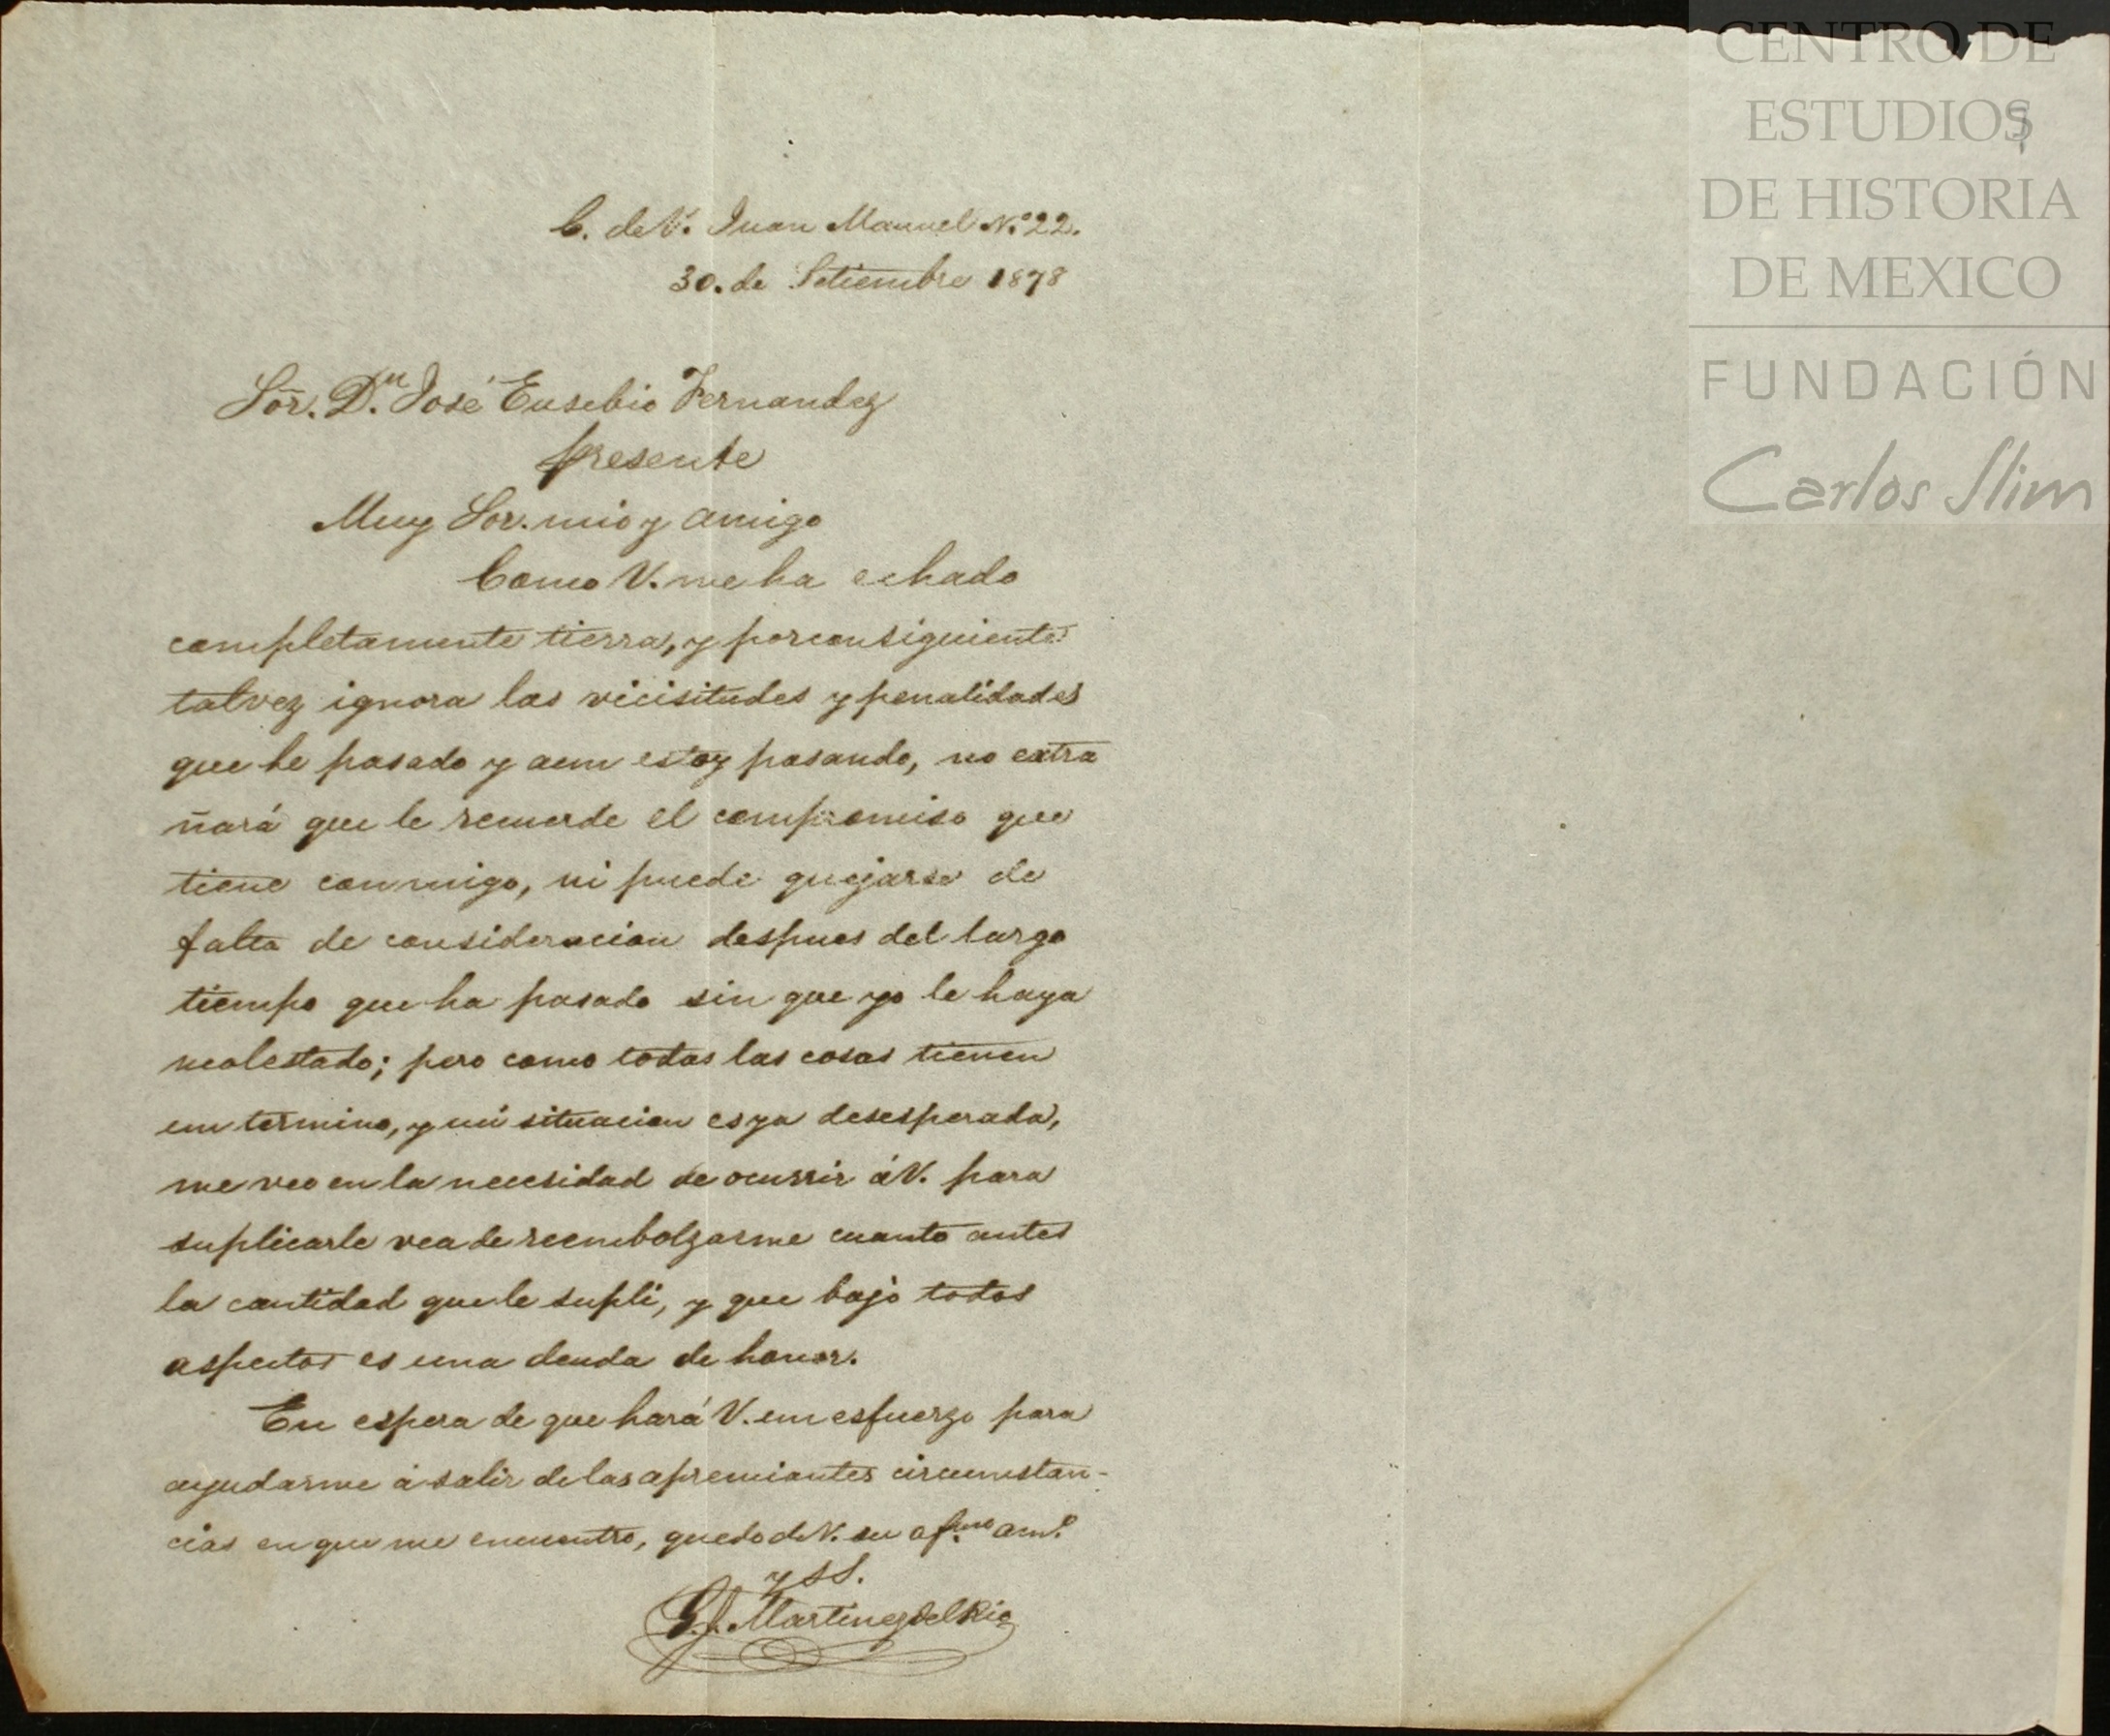 C. de V. Juan Manuel No. 22.
30. de Setiembre 1878
Sor. Dn. José Eusebio Fernandez
Presente
Muy Sor. mio y amigo
Como V. me ha echado
completamente tierra, y porconsiguiente
talvez ignora las vicisitudes y penalidades
que he pasado y aun estoy pasando, no extra
ñará que le recuerde el compromiso que
tiene conmigo, ni puede quejarse de
falta de consideracion despues del largo
tiempo que ha pasado sin que yo le haya
molestado; pero como todas las cosas tienen
un termino, y mi situacion es ya desesperada,
me veo en la necesidad de ocurrir á V. para
suplicarle vea de reembolzarme cuanto antes
la cantidad que le supli, y que bajo todos
aspectos es una deuda de honor.
En espera de que hará V. un esfuerzo para
ayudarme á salir de las apremiantes circunstan-
cias en que me encuentro, quedo de V. su afmo. amo.
y SS.
Martinez del Rio
CENTRO DE
ESTUDIOS
DE HISTORIA
DE MEXICO
FUNDACIÓN
Carlos Slim